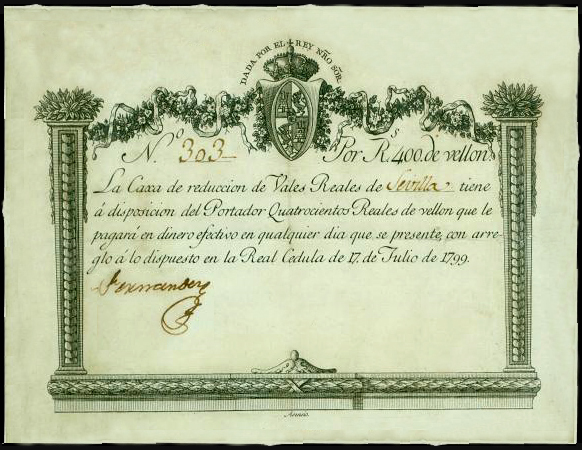 DADA POR EL REY NRO SOR.
N.º 303 Por R.s 400. de vellon
La Caxa de reduccion de Vales Reales de Sevilla tiene
á disposicion del Portador Quatrocientos Reales de vellon que le
pagará en dinero efectivo en qualquier dia que se presente, con arre-
glo á lo dispuesto en la Real Cedula de 17. de Julio de 1799.
Fernandez